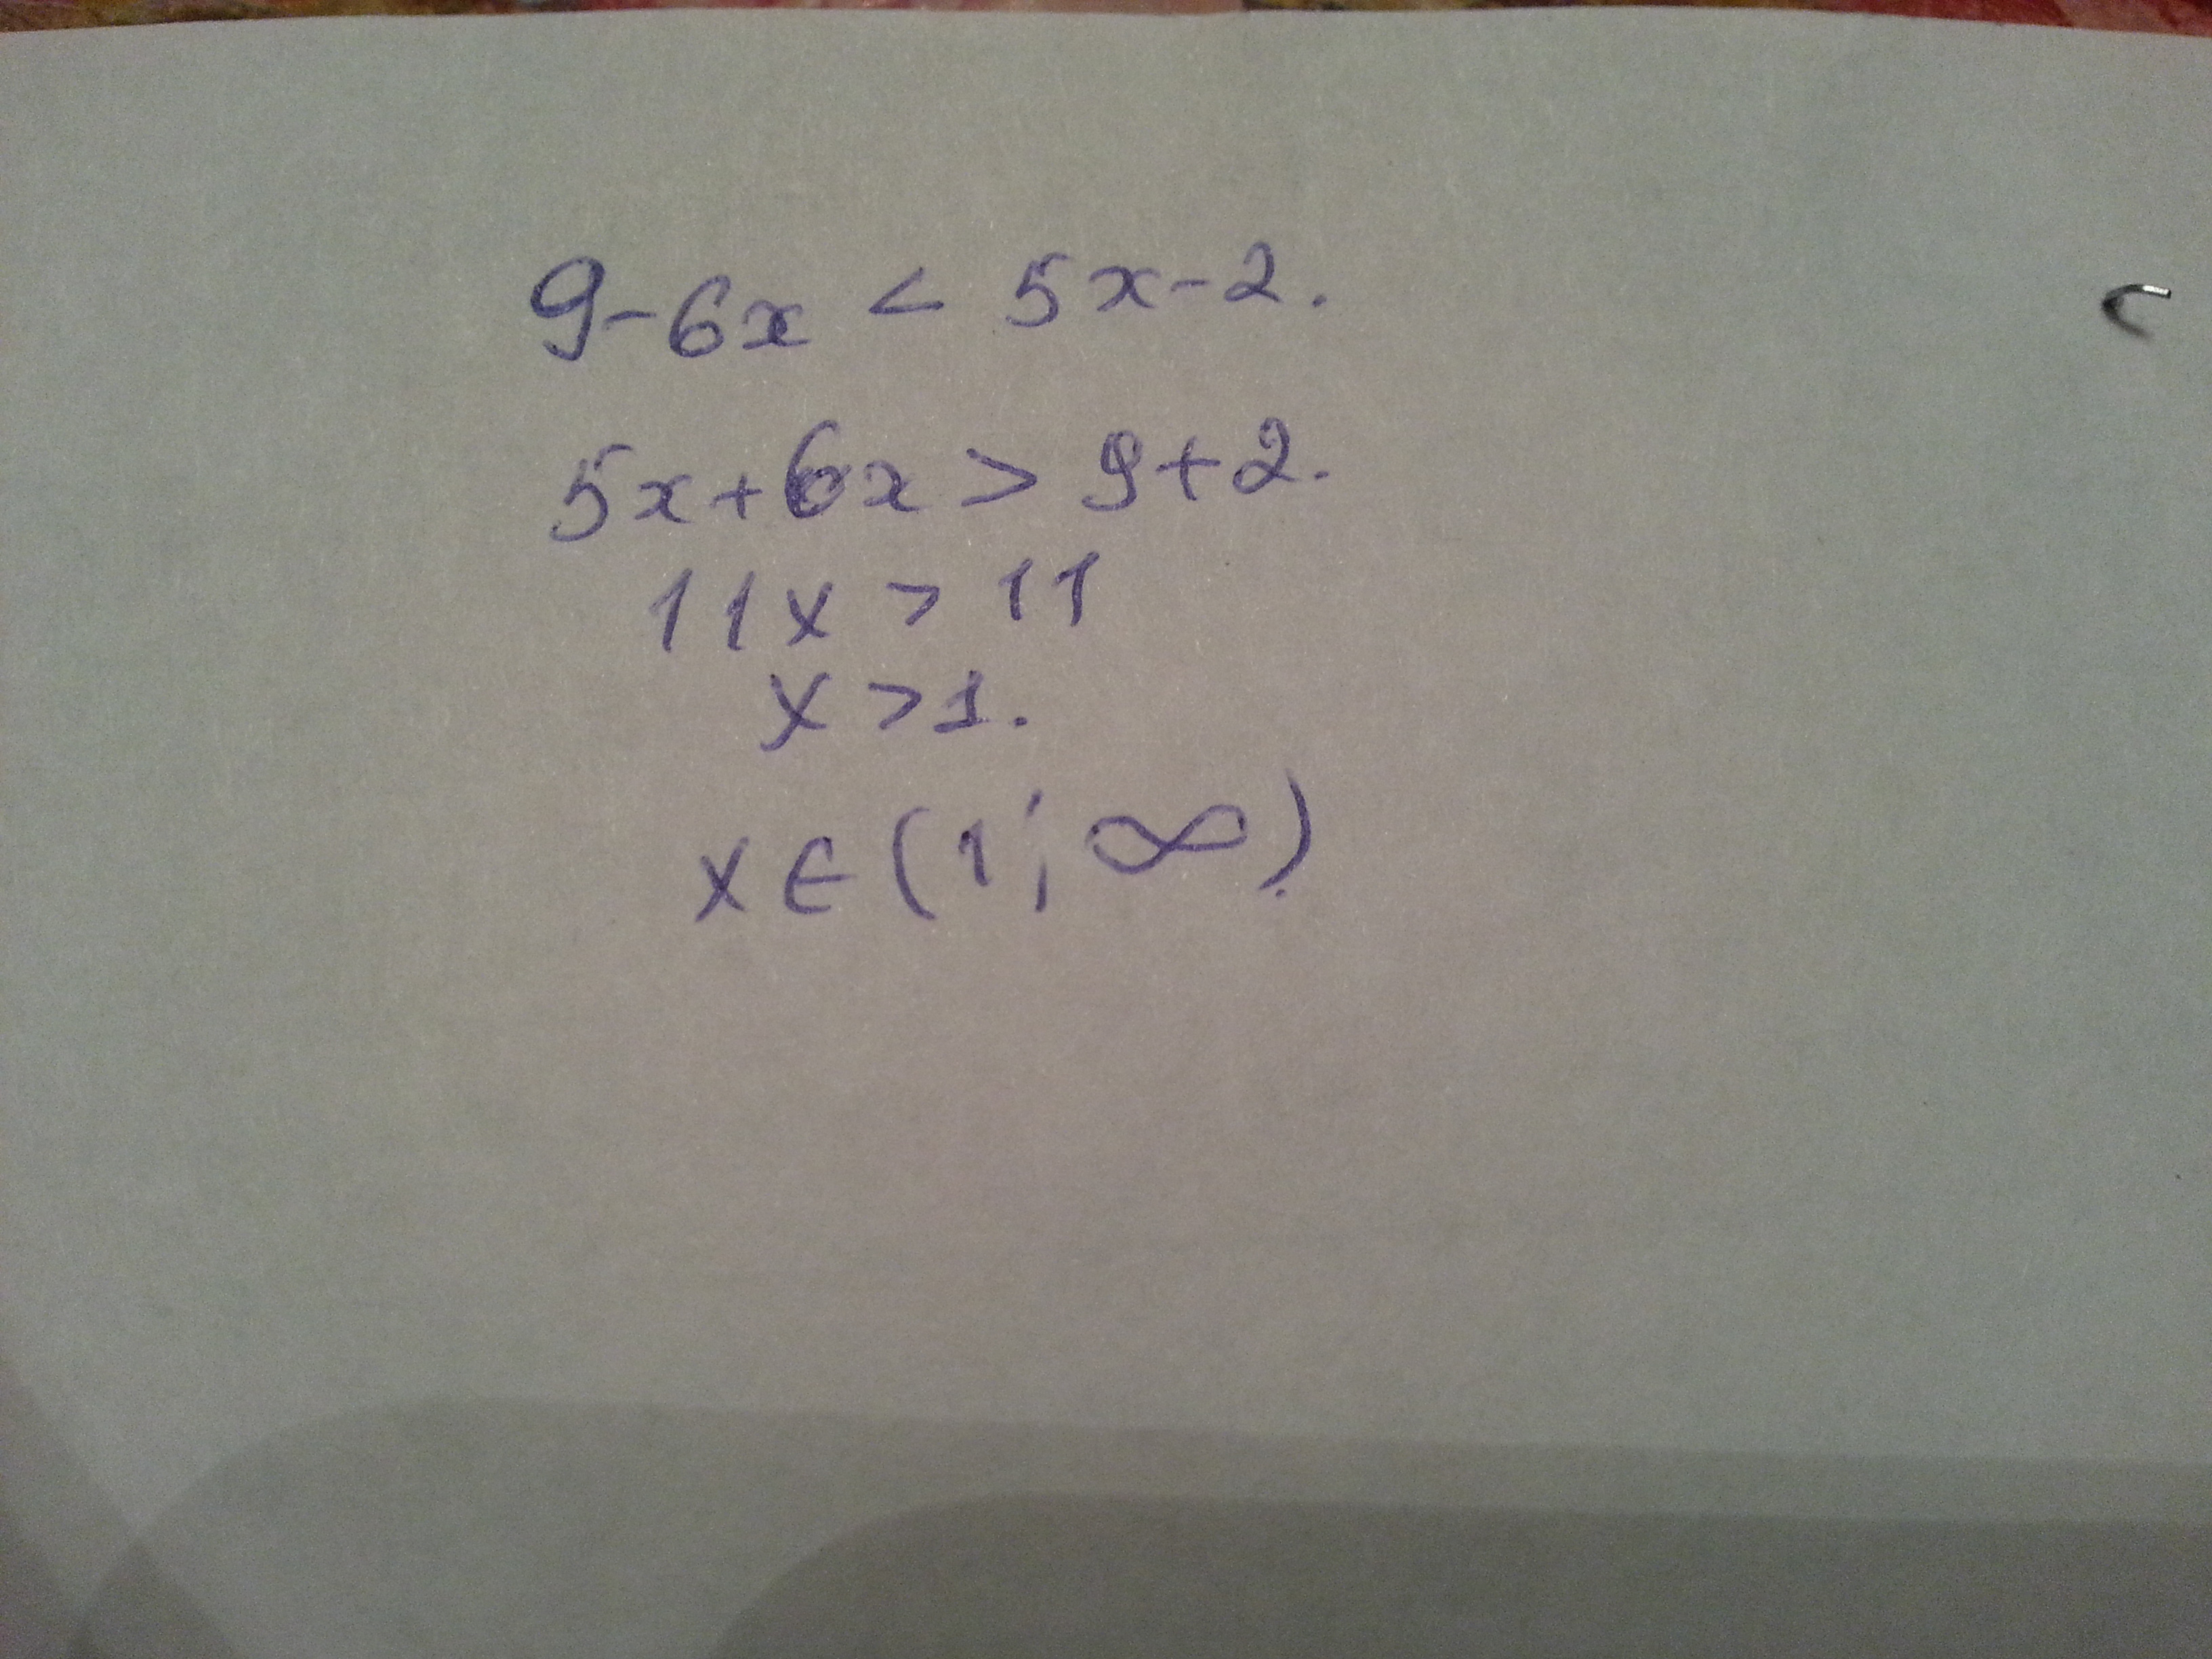 9-6x < 5x-2.
5x+6x > 9+2.
11x > 11
x >1.
x∈(1; ∞).